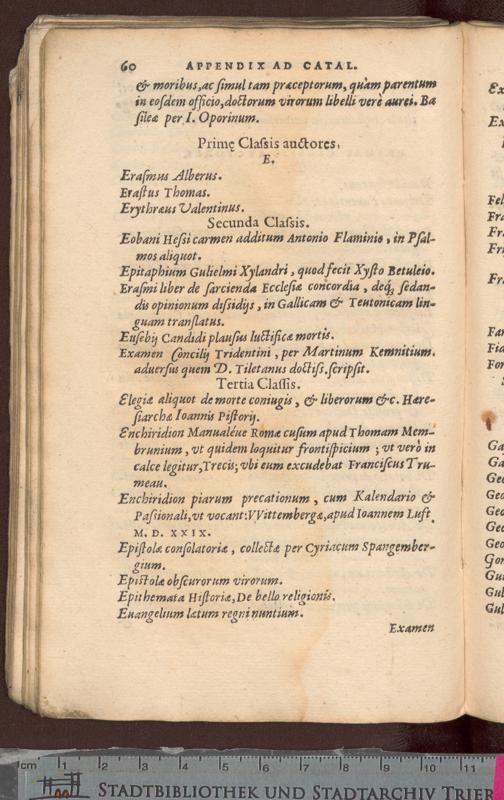 60 APPENDIX AD CATAL.
& moribus, ac simul tam præceptorum, quàm parentum
in eosdem officio, doctorum virorum libelli verè aurei. Ba
sileæ per I. Oporinum.
Primę Classis auctores,
E.
Erasmus Alberus.
Erastus Thomas.
Erythræus Valentinus.
Secunda Classis.
Eobani Hessi carmen additum Antonio Flaminio, in Psal-
mos aliquot.
Epitaphium Gulielmi Xylandri, quod fecit Xysto Betuleio.
Erasmi liber de sarcienda Ecclesiæ concordia, deq; sedan-
dis opinionum dissidijs, in Gallicam & Teutonicam lin-
guam translatus.
Eusebij Candidi plausus luctificæ mortis.
Examen Concilij Tridentini, per Martinum Kemnitium.
aduersus quem D. Tiletanus doctiss. scripsit.
Tertia Classis.
Elegiæ aliquot de morte coniugis, & liberorum &c. Hære-
siarchæ Ioannis Pistorij.
Enchiridion Manualéue Romæ cusum apud Thomam Mem-
brunium, vt quidem loquitur frontispicium; vt verò in
calce legitur, Trecis; vbi eum excudebat Franciscus Tru-
meau.
Enchiridion piarum precationum, cum Kalendario &
Passionali, vt vocant: VVittembergæ, apud Ioannem Luft
M. D. XXIX.
Epistolæ consolatoriæ, collectæ per Cyriacum Spangember-
gium.
Epistolæ obscurorum virorum.
Epithemata Historiæ, De bello religionis.
Euangelium lætum regni nuntium.
Examen
Ex
Ex
Fel
Fra
Fri
Fri
Fr
Far
Fid
For
Ga
Ga
Geo
Geo
Geo
Geo
Geo
Gor
Gui
Gul
Gul
cm 1 2 3 4 5 6 7 8 9 10 11
STADTBIBLIOTHEK UND STADTARCHIV TRIER